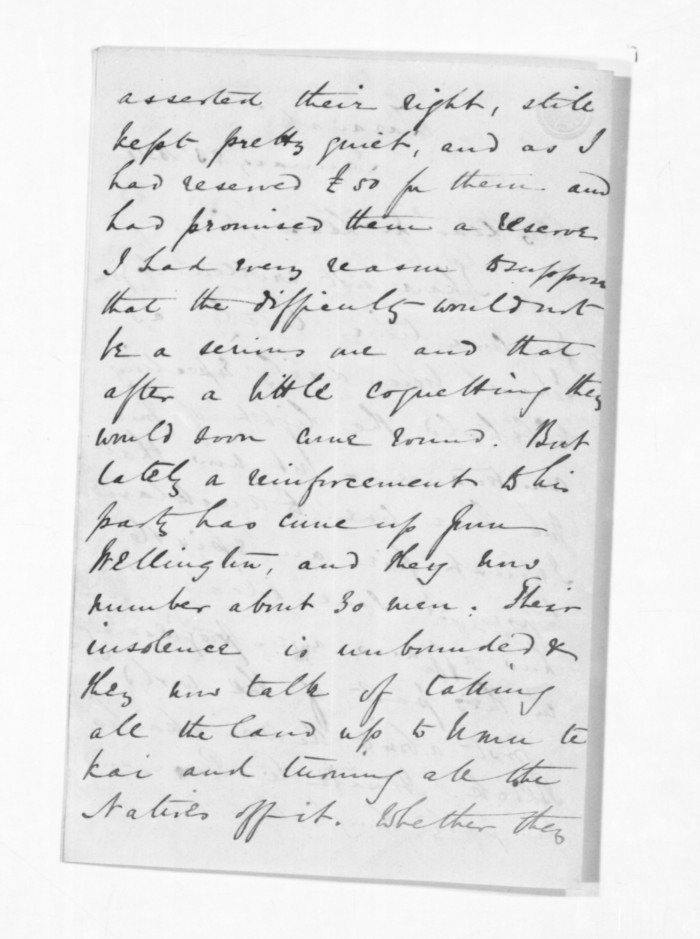 asserted their right, still
kept pretty quiet, and as I
had reserved £50 for them and
had promised them a reserve
I had every reason to suppose
that the difficulty would not
be a serious one and that
after a little coquetting they
would soon come round. But
lately a reinforcement to his
party has come up from
Wellington, and they now
number about 30 men. Their
insolence is unbounded &
they now talk of taking
all the land up to Umu te
kai and turning all the
Natives off it. Whether they